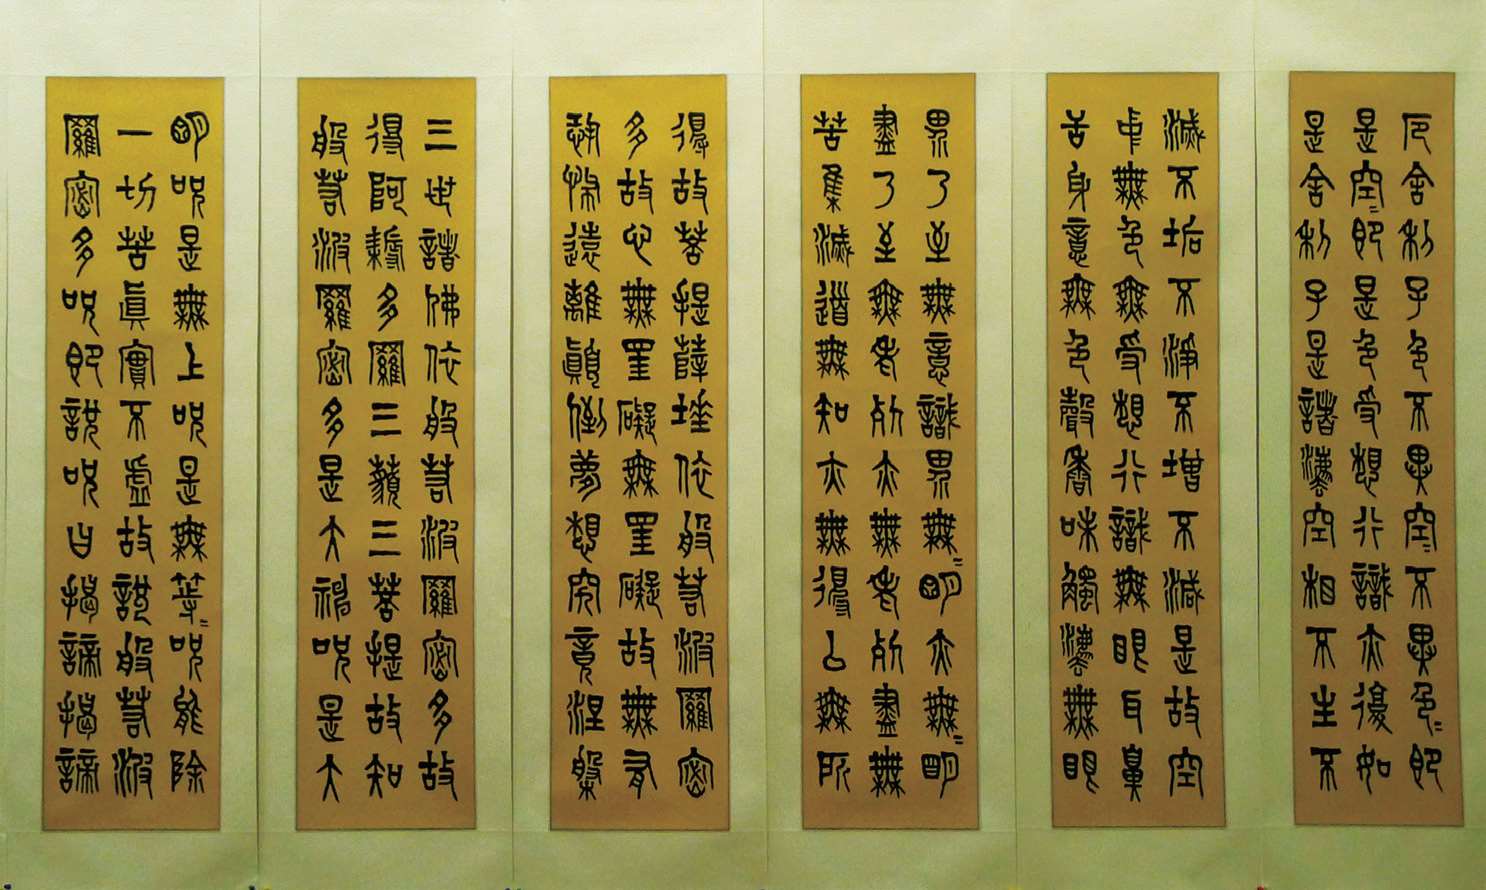 厄舍利子色不異空〻不異色〻即
是空〻即是色受想行識亦復如
是舍利子是諸法空相不生不
滅不垢不淨不增不減是故空
中無色無受想行識無眼耳鼻
舌身意無色聲香味觸法無眼
界乃至無意識界無〻明亦無〻明
盡乃至無老死亦無老死盡無
苦集滅道無知亦無得以無所
得故菩提薩埵依般若波羅密
多故心無罣礙無罣礙故無有
恐怖遠離顛倒夢想究竟涅槃
三世諸佛依般若波羅密多故
得阿耨多羅三藐三菩提故知
般若波羅密多是大神呪是大
明呪是無上呪是無等〻呪能除
一切苦眞實不虛故說般若波
羅密多呪即說呪曰揭諦揭諦